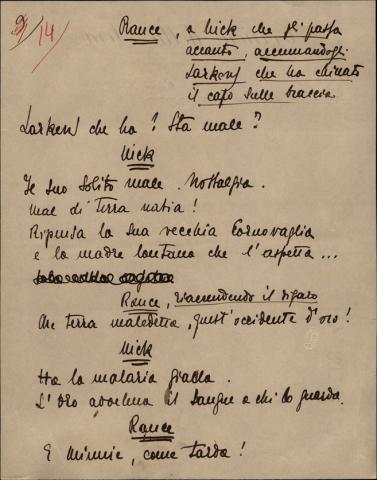 14)
Rance, a Nick che gli passa
accanto, accennandogli
Larkens che ha chinato
il capo sulle braccia
Larkens che ha? Sta male?
Nick
Il suo solito male. Nostalgia.
Mal di terra natia!
Ripensa la sua vecchia Cornovaglia
e la madre lontana che l'aspetta...
Rance, riaccendendo il sigaro
Che terra maledetta, quest'occidente d'oro!
Nick
Ha la malaria gialla.
L'oro avvelena il sangue a chi lo guarda.
Rance
E Minnie, come tarda!